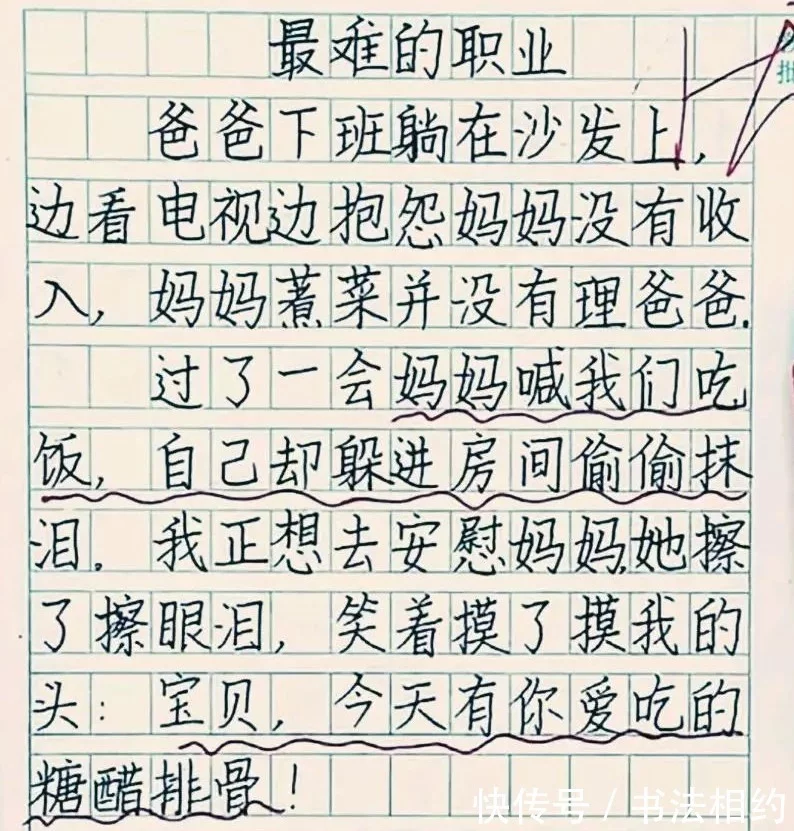 最难的职业
爸爸下班躺在沙发上,
边看电视边抱怨妈妈没有收
入,妈妈煮菜并没有理爸爸.
过了一会妈妈喊我们吃
饭,自己却躲进房间偷偷抹
泪.我正想去安慰妈妈,她擦
了擦眼泪,笑着摸了摸我的
头:宝贝,今天有你爱吃的
糖醋排骨!
批
快传号/书法相约